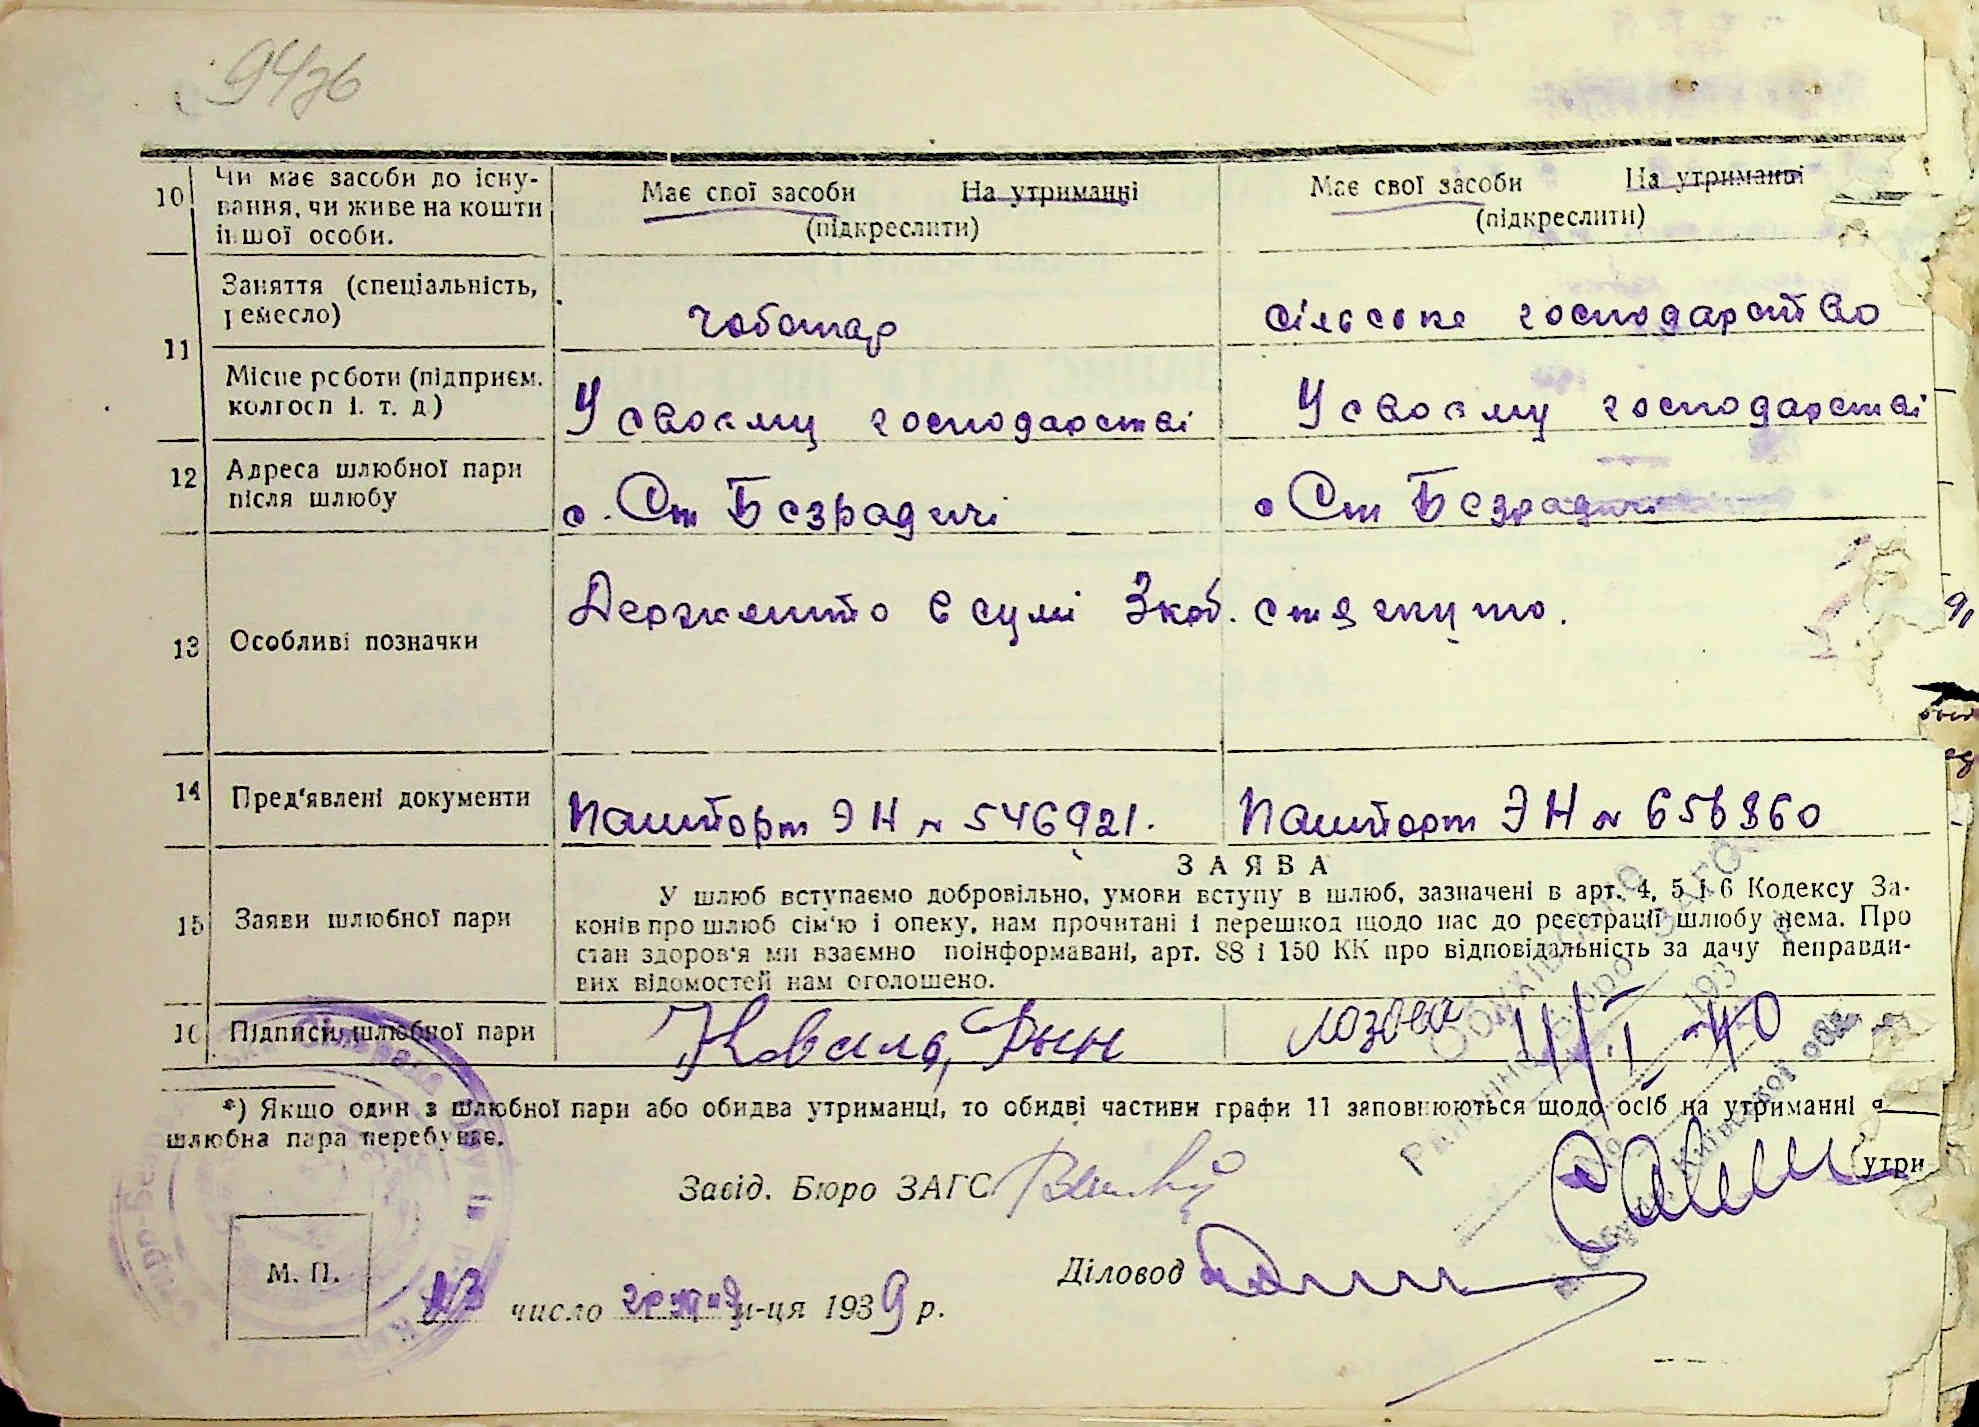 10
Чи має засоби до існу-
вання, чи живе на кошти
іншої особи.
Має свої засоби На утриманні
(підкреслити)
Має свої засоби На утриманні
(підкреслити)
11
Заняття (спеціальність,
ремесло)
чоботар
сільське господарство
Місце роботи (підприєм.
колгосп і. т. д)
У своєму господарстві
У своєму господарстві
12
Адреса шлюбної пари
після шлюбу
с. Ст Безрадичі
с Ст Безрадичі
13
Особливі позначки
Держмито в сумі 3 коб. стягнуто.
14
Пред'явлені документи
Пашпорт ЭН № 546921.
Пашпорт ЭН № 656860
15
Заяви шлюбної пари
ЗАЯВА
У шлюб вступаємо добровільно, умови вступу в шлюб, зазначені в арт. 4, 5 і 6 Кодексу За-
конів про шлюб сім'ю і опеку, нам прочитані і перешкод щодо нас до реєстрації шлюбу нема. Про
стан здоров'я ми взаємно поінформавані, арт. 88 і 150 КК про відповідальність за дачу неправди-
вих відомостей нам оголошено.
16
Підписи шлюбної пари
Коваль,
Лозова
11/I-40
*) Якщо один з шлюбної пари або обидва утриманці, то обидві частини графи 11 заповнюються щодо осіб на утриманні я
шлюбна пара перебуває.
утри
Завід. Бюро ЗАГС
Діловод
М. П.
13 число м-ця 1939 р.